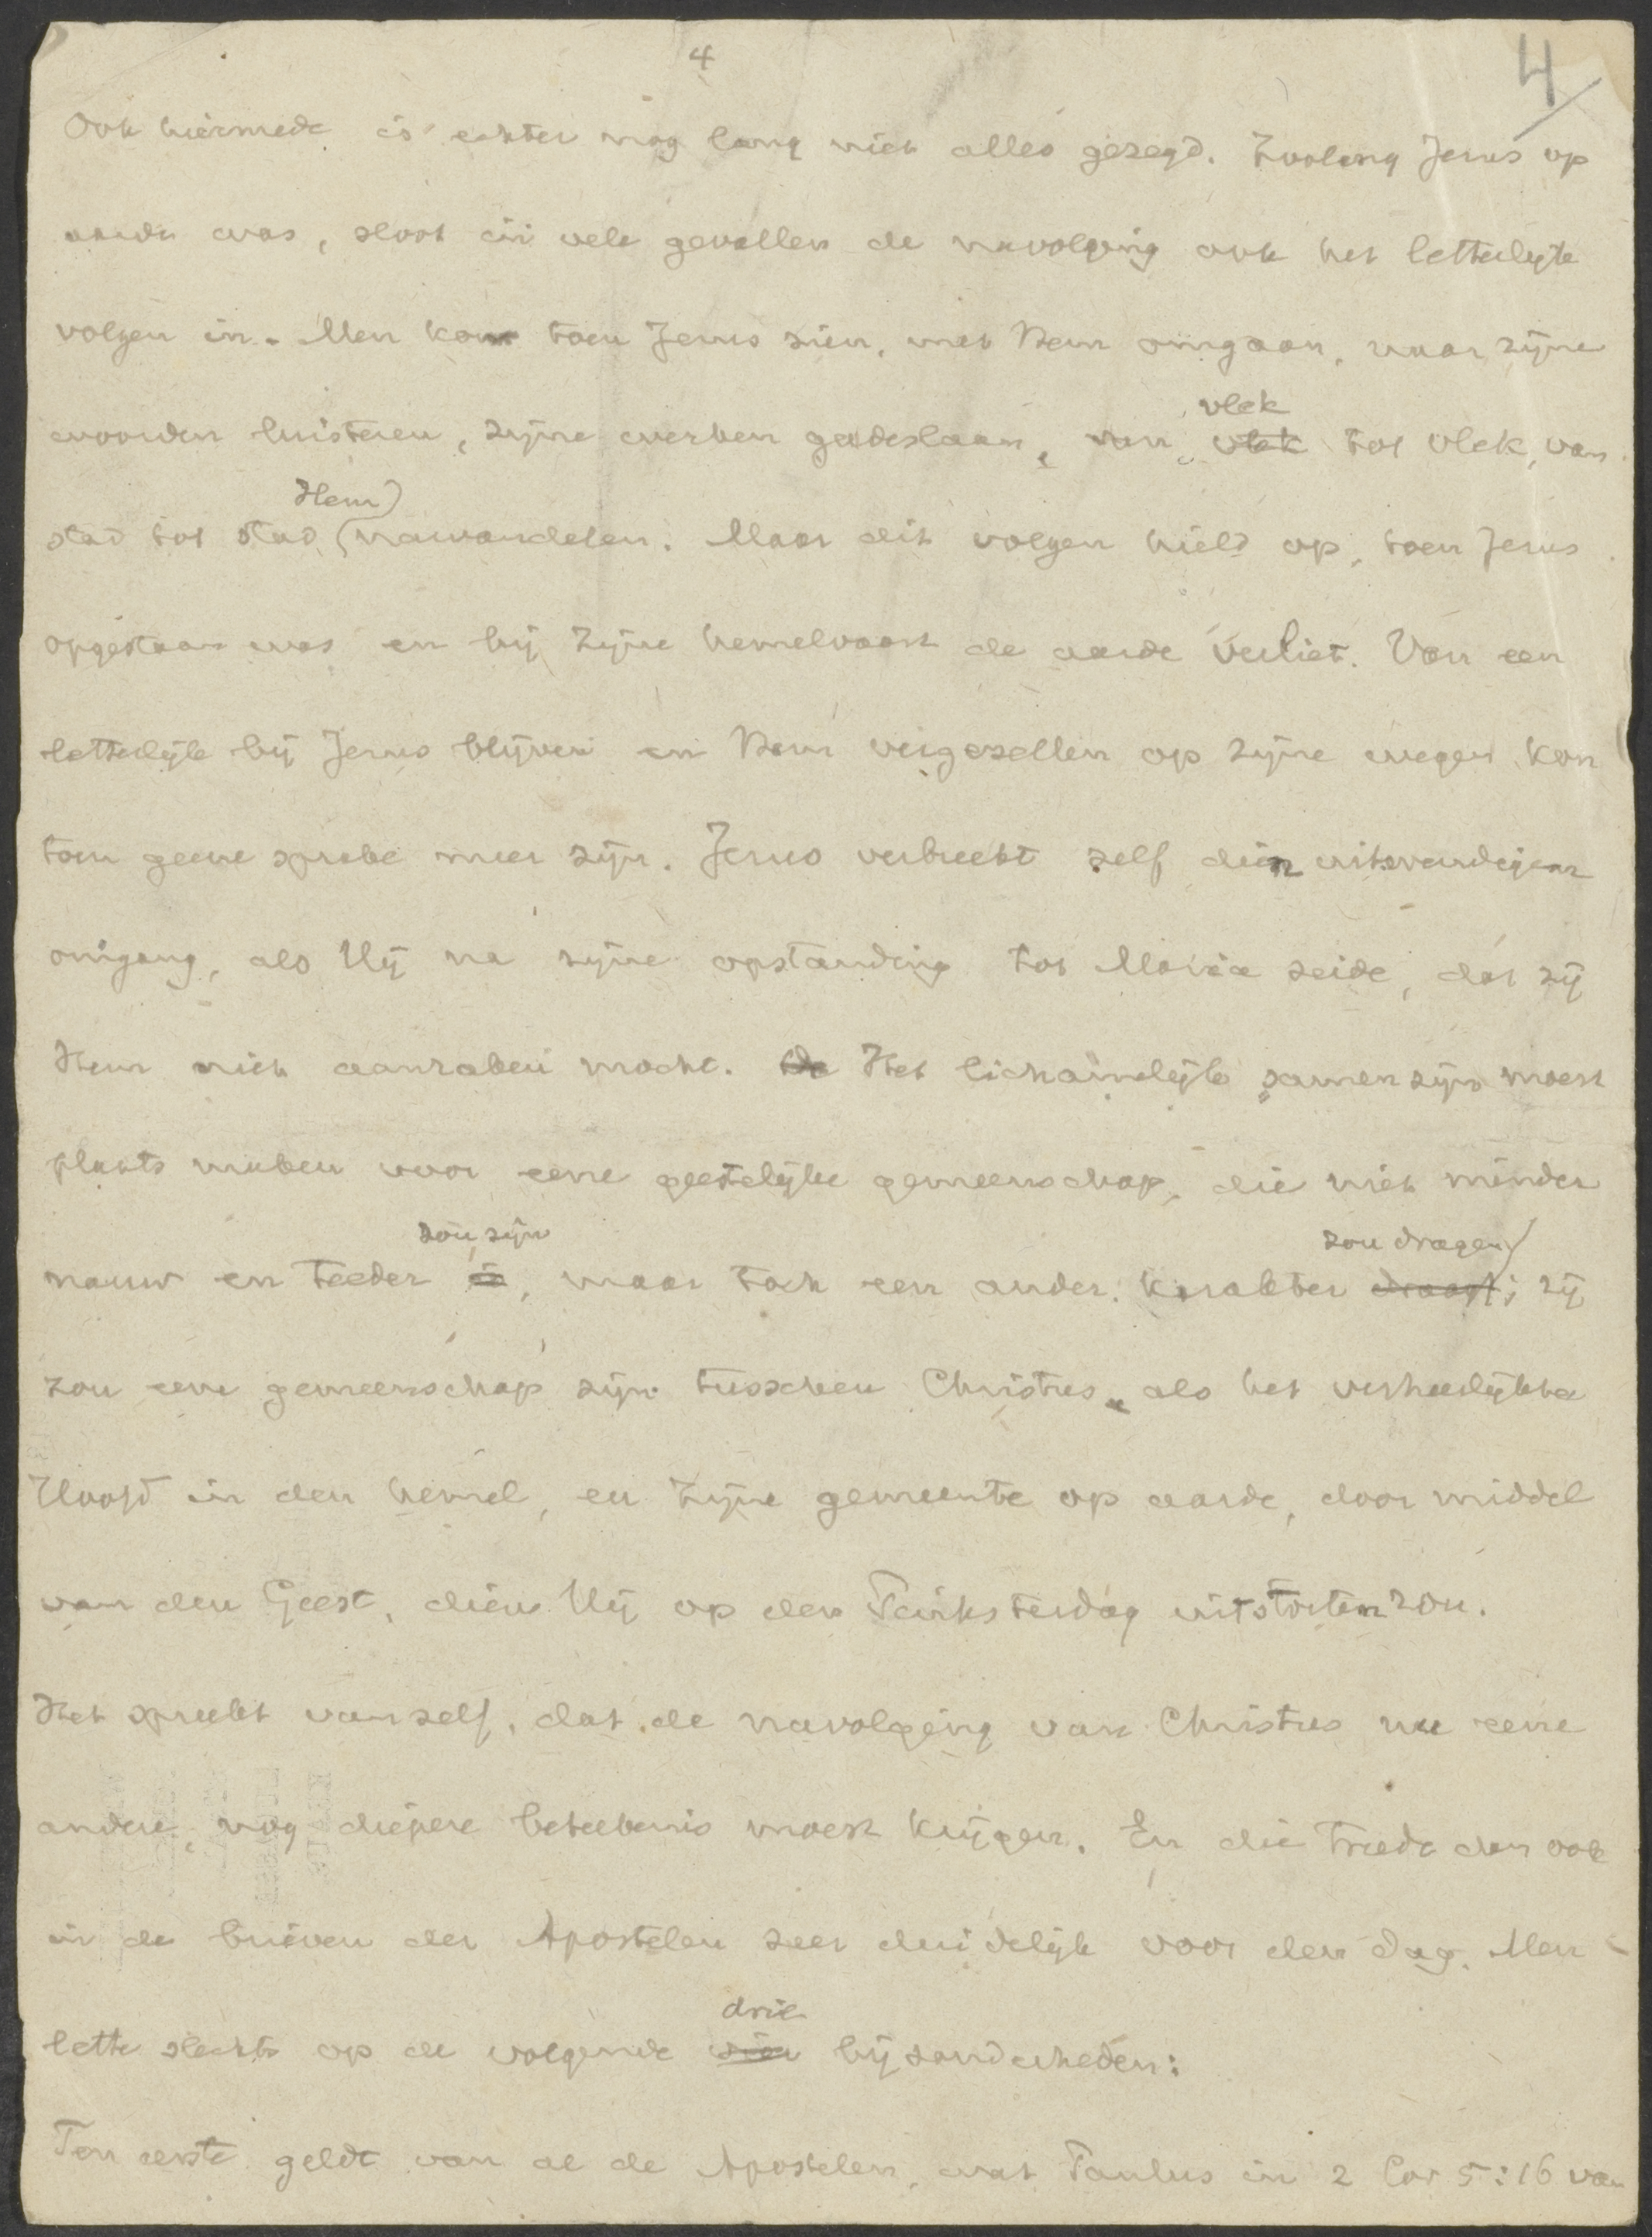 4
4
Ook hiermede is echter nog lang niet alles gezegd. Zoolang Jezus op
aarde was, sloot in vele gevallen de navolging ook het letterlijke
volgen in. Men kon toen Jezus zien, met Hem omgaan, naar zijne
vlek
woorden luisteren, zijne werken gadeslaan, van vlek tot vlek, van
Hem)
stad tot stad (nawandelen. Maar dit volgen hield op, toen Jezus
opgestaan was en bij zijne hemelvaart de aarde verliet. Van een
letterlijk bij Jezus blijven en Hem vergezellen op zijne wegen kon
toen geene sprake meer zijn. Jezus verbreekt zelf dien uitwendigen
omgang, als Hij na zijne opstanding tot Maria zeide, dat zij
Hem niet aanraken mocht. De Het lichamelijk samenzijn moest
plaats maken voor eene geestelijke gemeenschap, die niet minder
zou zijn zou dragen)
nauw en teeder is, maar toch een ander karakter draagt; zij
zou eene gemeenschap zijn tusschen Christus, als het verheerlijkte
Hoofd in den hemel, en zijne gemeente op aarde, door middel
van den Geest, dien Hij op den Pinksterdag uitstorten zou.
Het spreekt vanzelf, dat de navolging van Christus nu eene
andere, nog diepere beteekenis moest krijgen. En die treedt dan ook
in de brieven der Apostelen zeer duidelijk voor den dag. Men
drie
lette slechts op de volgende vier bijzonderheden:
Ten eerste geldt van al de Apostelen, wat Paulus in 2 Cor 5:16 van